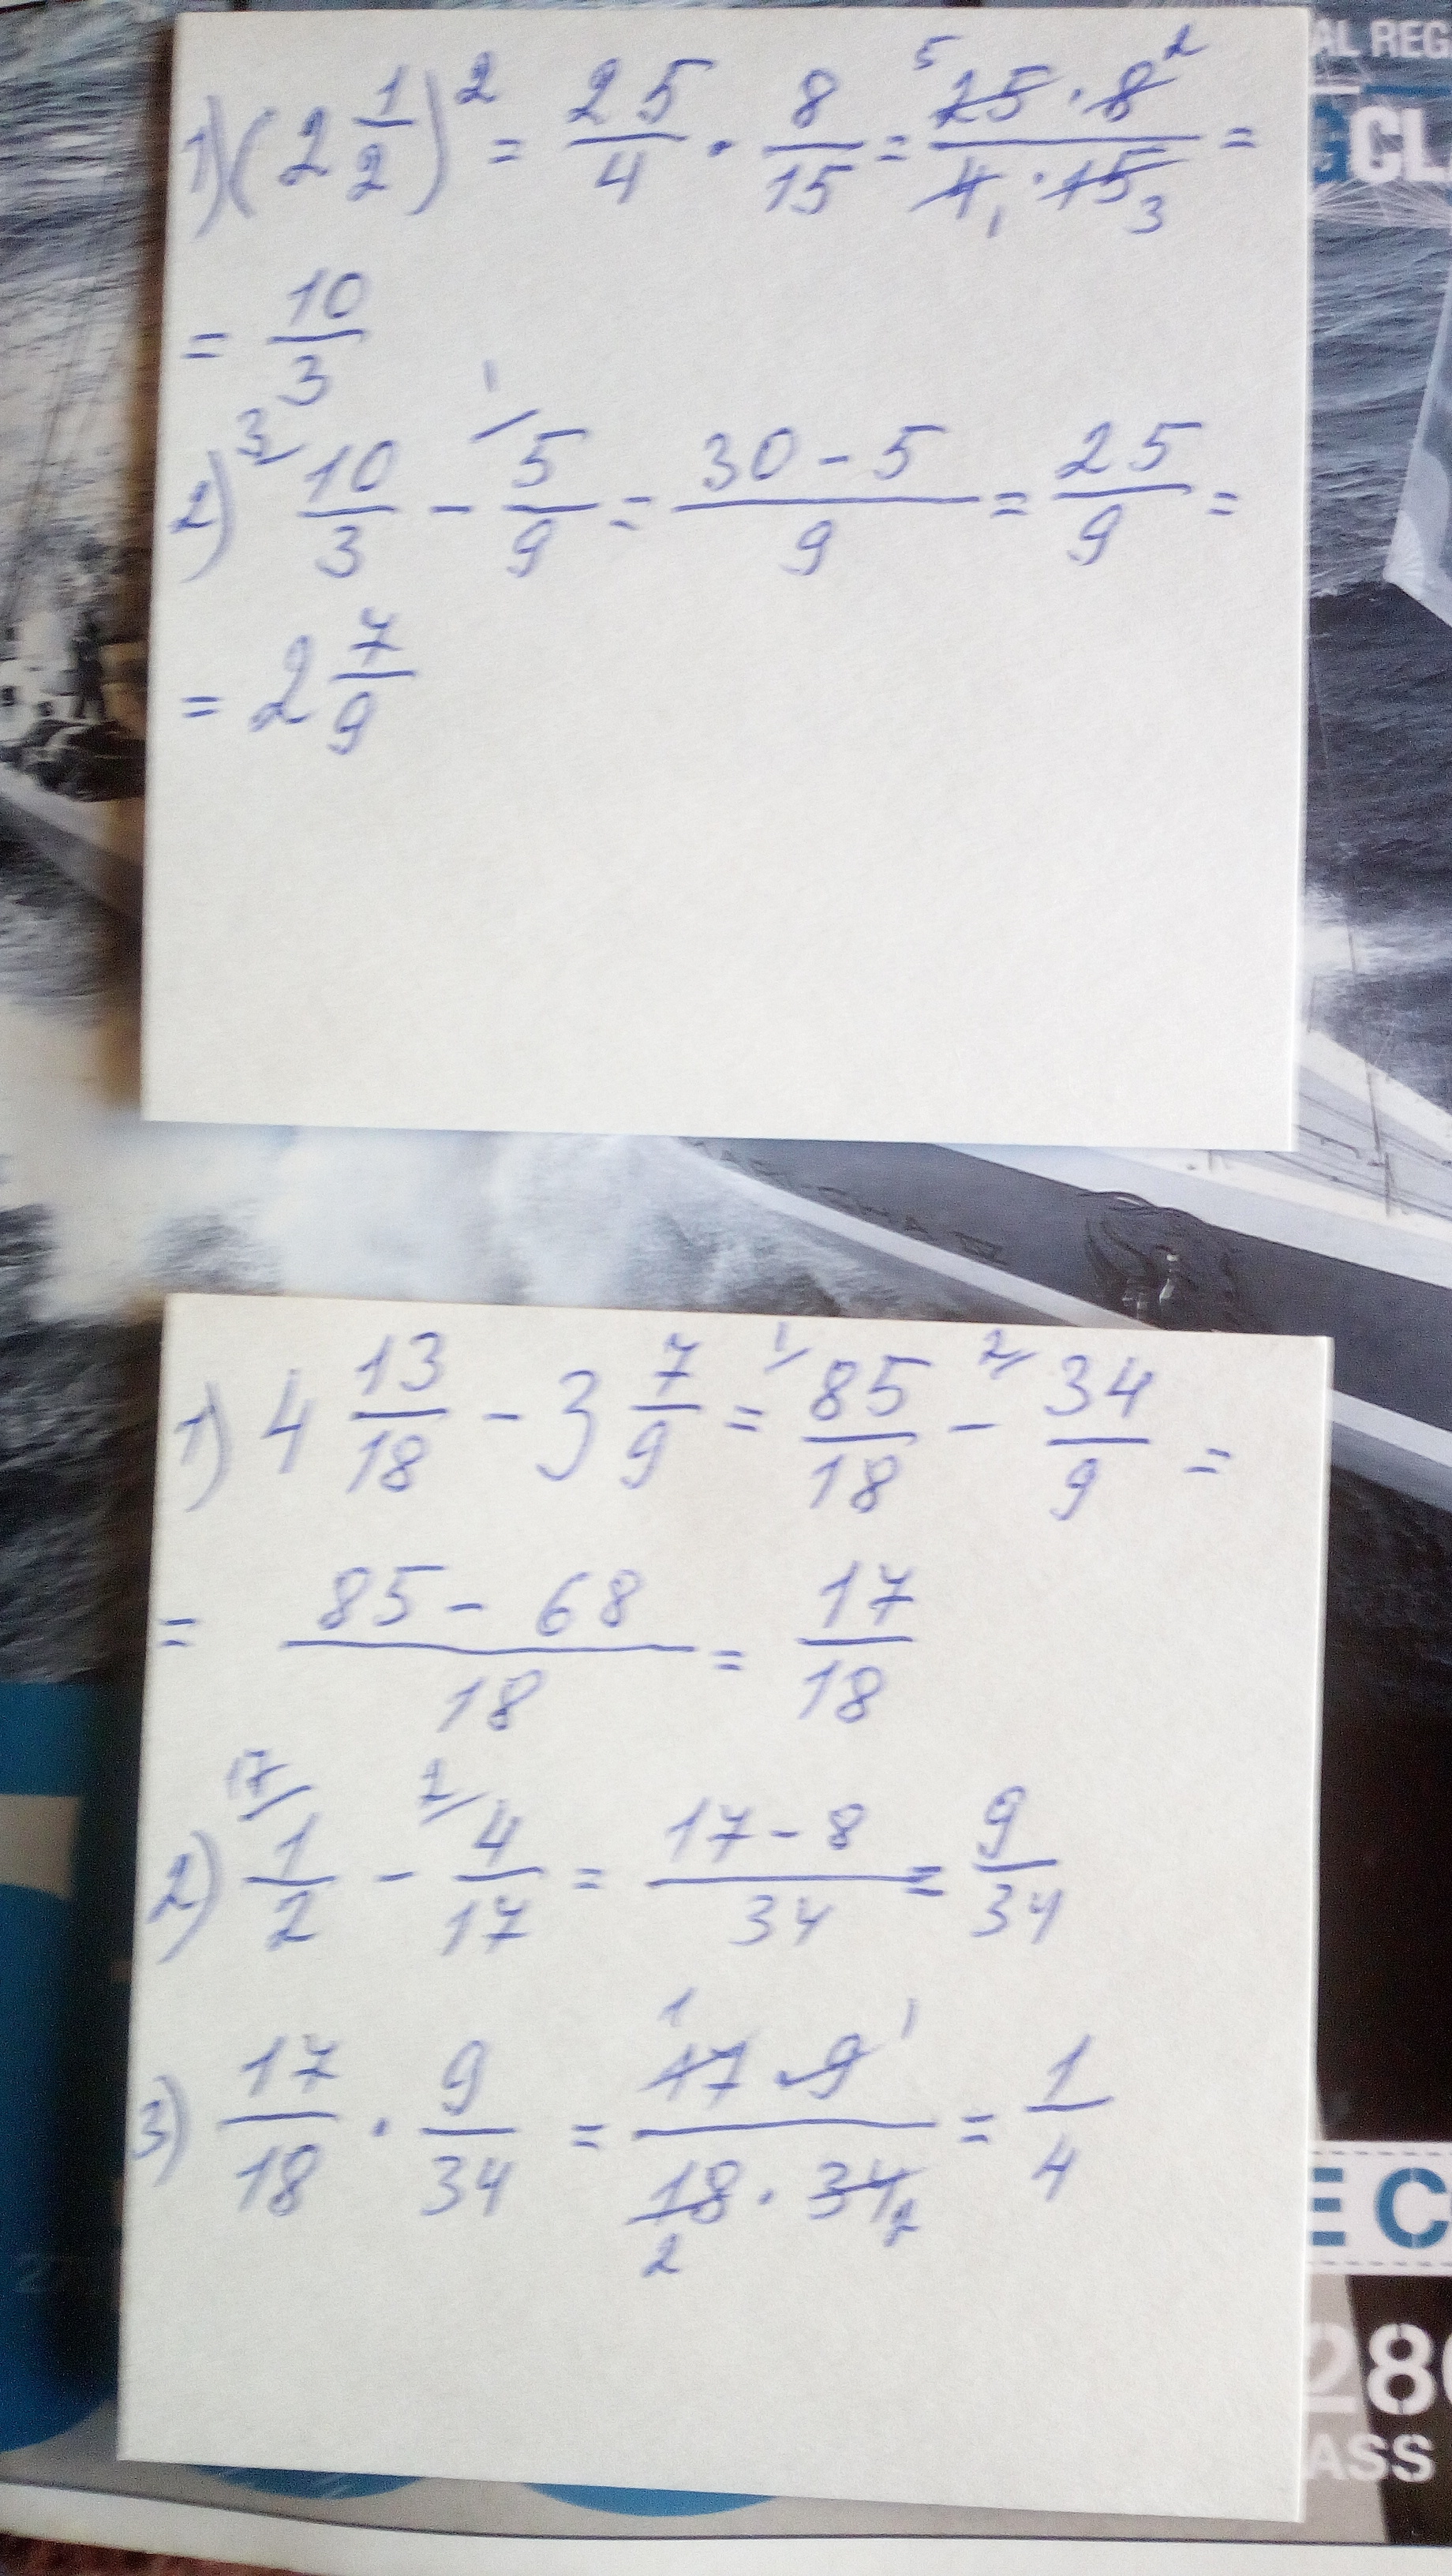 AL REG
CL
1) (2 1/2)² = 25/4 · 8/15 = 5 25 · 8 2 / 4 1 · 15 3 =
= 10/3
2) 3/ 10/3 - 1/ 5/9 = 30 - 5 / 9 = 25/9 =
= 2 7/9
1) 4 13/18 - 3 7/9 = 1/ 85/18 - 2/ 34/9 =
= 85 - 68 / 18 = 17/18
2) 17/ 1/2 - 2/ 4/17 = 17 - 8 / 34 = 9/34
3) 17/18 · 9/34 = 1 17 · 9 1 / 18 2 · 34 2 = 1/4
E C
28
ASS